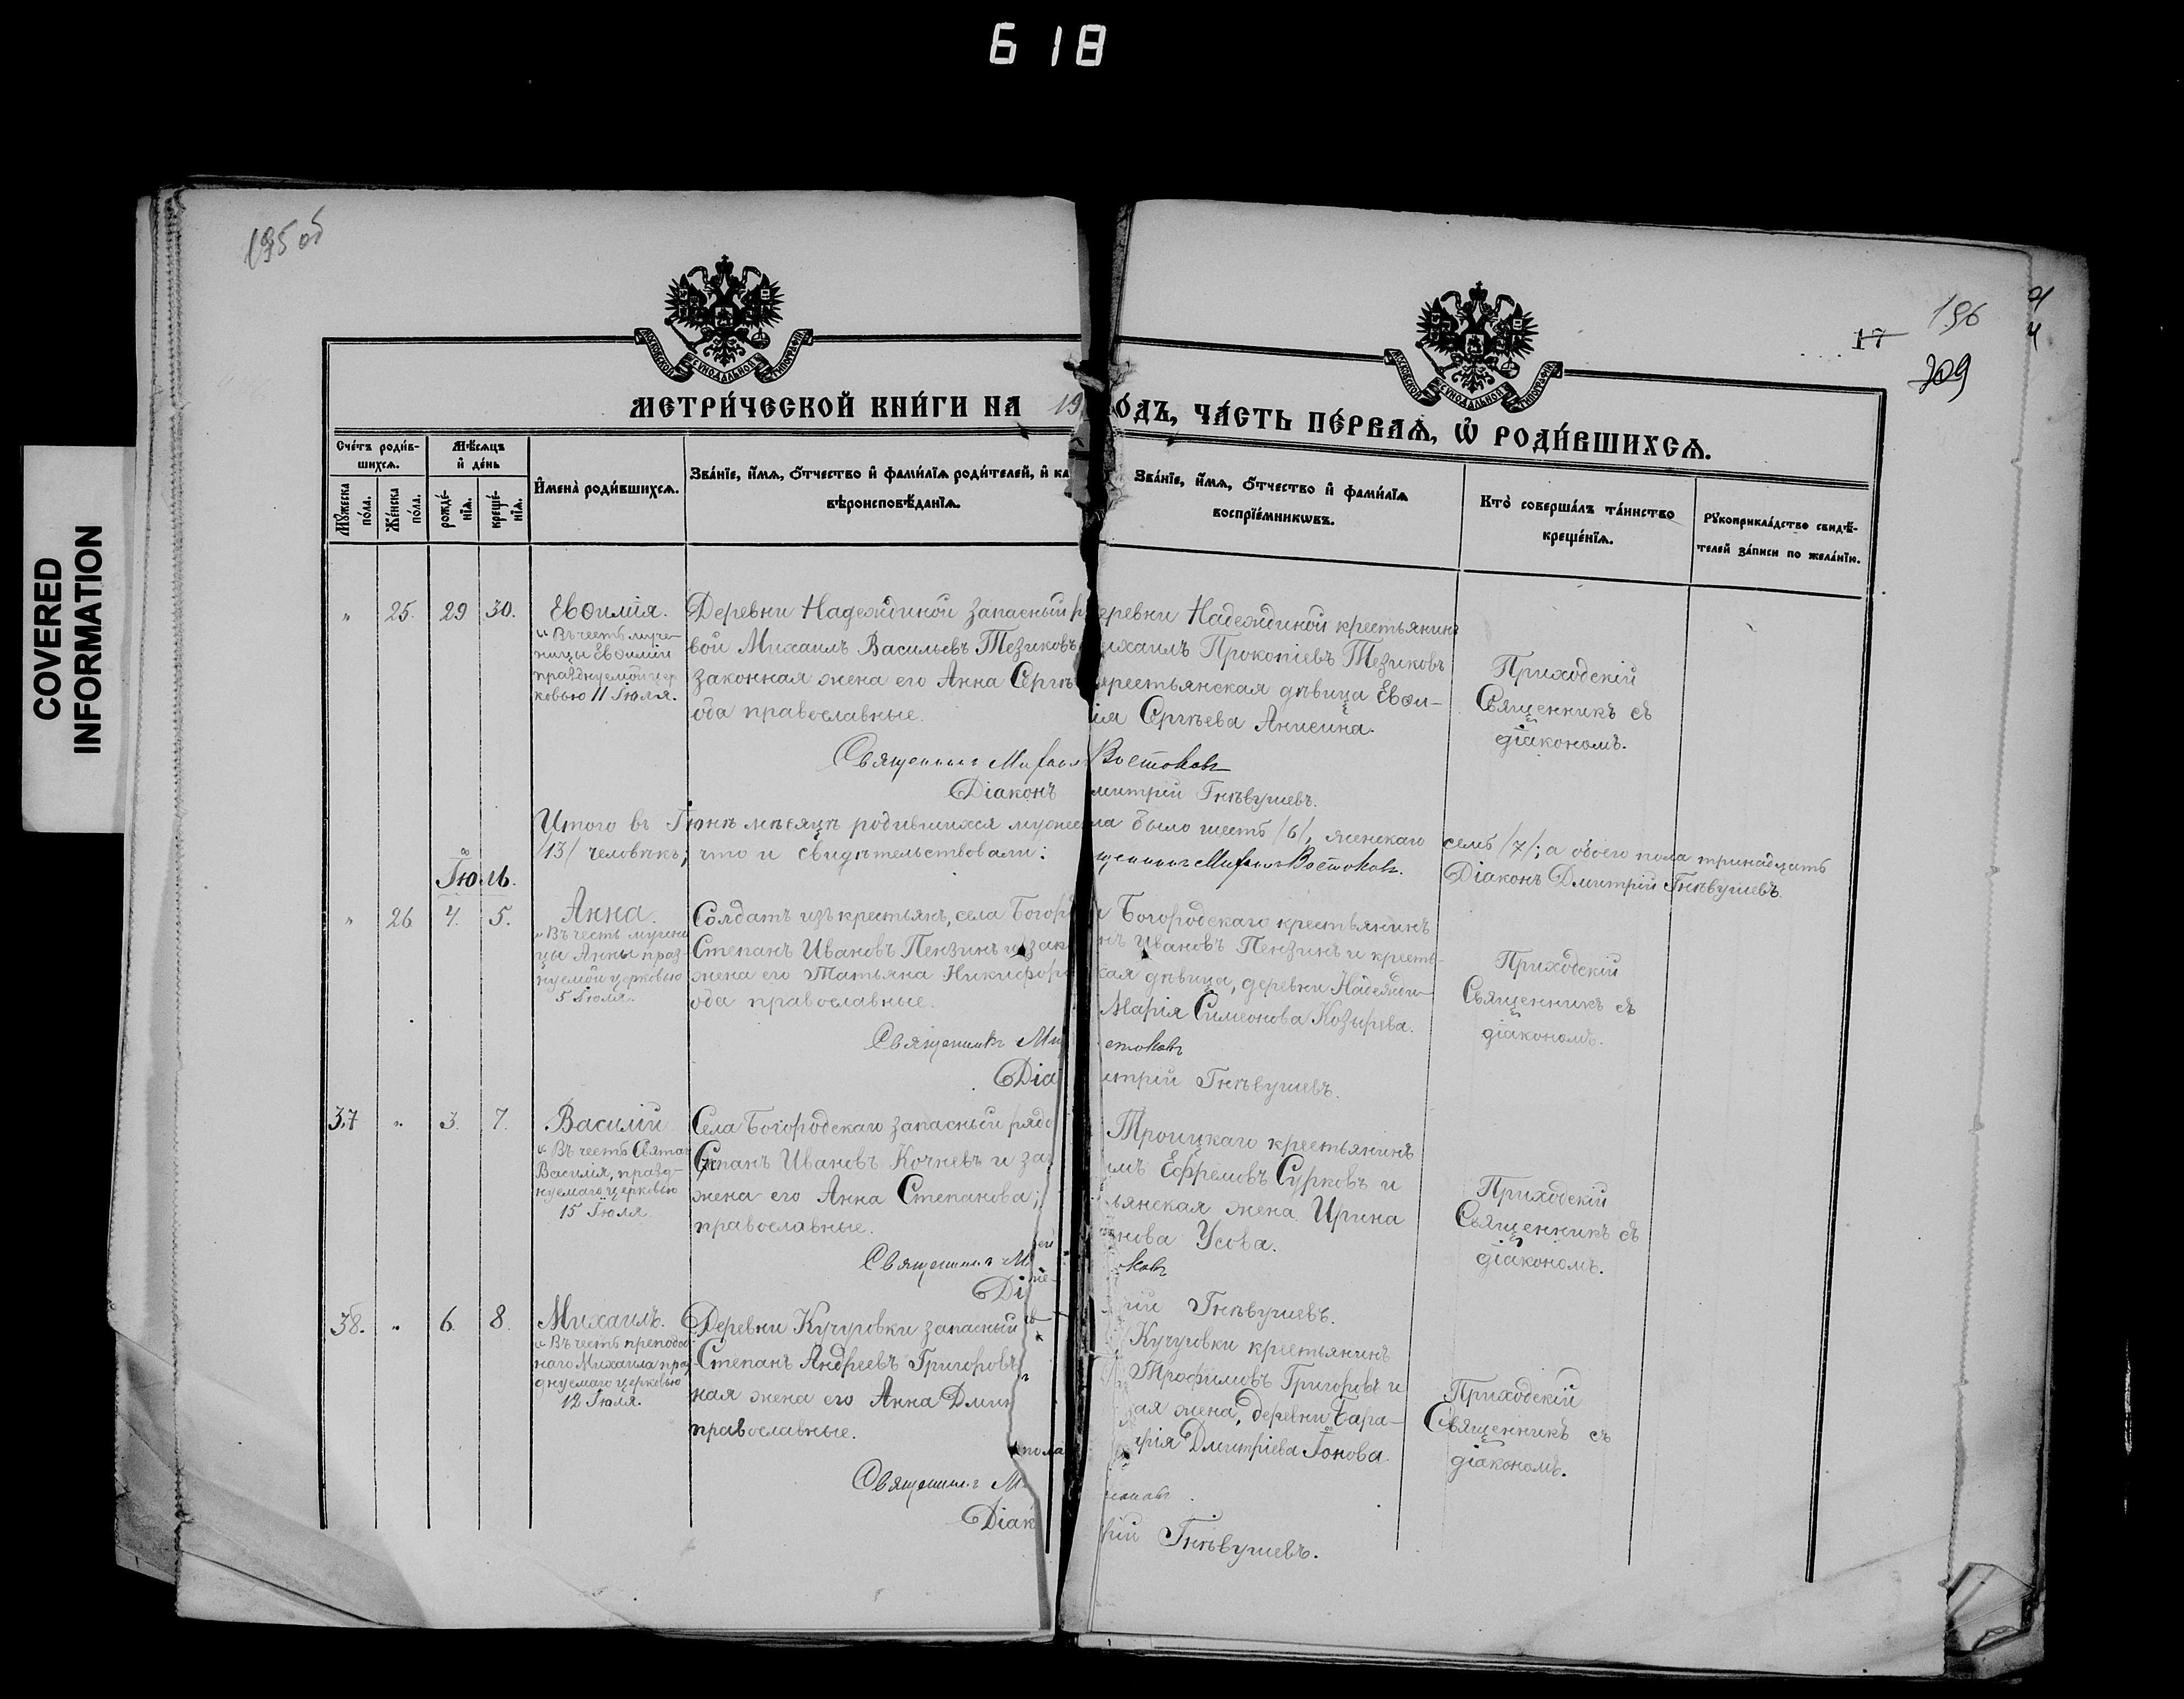 618
COVERED
INFORMATION
195 об
196
17
209
МЕТРИ́ЧЕСКОЙ КНИ́ГИ НА 19
О́ДЪ, ЧА́СТЬ ПЕ́РВАѦ, Ѽ РОДИ́ВШИХСѦ.
Сче́тъ роди́в-
шихсѧ.
Мѣ́сѧцъ
и҆ де́нь
Мꙋ́жеска
по́ла.
Же́нска
по́ла.
рожде́-
нїѧ.
креще́-
нїѧ.
И҆мена̀ роди́вшихсѧ.
Зва́нїе, и҆́мѧ, ѻ҆́тчество и҆ фами́лїѧ роди́телей, и҆ ка
вѣроисповѣ́данїѧ.
Зва́нїе, и҆́мѧ, ѻ҆́тчество и҆ фами́лїѧ
воспрїе́мникѡвъ.
Кто̀ соверша́лъ та́инство
креще́нїѧ.
Рꙋкоприкла́дство свидѣ́-
телей за́писи по жела́нїю.
„ 25. 29 30. Евѳимія.
„Въ честь муче-
ницы Евѳиміи
празднуемой цер
ковью 11 Іюля.
Деревни Надеждиной запасный р
вой Михаилъ Васильевъ Тезиковъ
законная жена его Анна Сергѣ
оба православные.
еревни Надеждиной крестьянинъ
ихаилъ Прокопіевъ Тезиковъ
крестьянская дѣвица Евѳи-
ія Сергѣева Анисина.
Приходскій
Священникъ съ
діакономъ.
Священникъ Михаил Востоковъ
Діаконъ митрій Гнѣвушевъ.
Итого въ Іюнѣ мѣсяцѣ родившихся мужес ла было шесть /6/, женскаго семь /7/; а обоего пола тринадцать
/13/ человѣкъ; что и свидѣтельствовали: щенникъ Михаил Востоковъ. Діаконъ Дмитрій Гнѣвушевъ.
Іюль.
„ 26 4. 5. Анна.
„Въ честь мучени
цы Анны праз-
нуемой церковью
5 Іюля.
Солдатъ изъ крестьянъ, села Богор
Степанъ Ивановъ Пензинъ и зак
жена его Татьяна Никифоро
оба православные.
Богородскаго крестьянинъ
нъ Ивановъ Пензинъ и кресть-
кая дѣвица, деревни Надежди-
Марія Симеонова Козырева.
Приходскій
Священникъ съ
діакономъ.
Священникъ Ми стоковъ
Діа итрій Гнѣвушевъ.
37 „ 3. 7. Василій
„Въ честь Свята
Василія, празд-
нуемаго церковью
15 Іюля
Села Богородскаго запасный рядо
Степанъ Ивановъ Кочневъ и за
жена его Анна Степанова;
православные.
Троицкаго крестьянинъ
имъ Ефремовъ Сурковъ и
ьянская жена Ирина
нова Усова.
Приходскій
Священникъ съ
діакономъ.
Священникъ М ковъ
Ді рій Гнѣвушевъ.
38. „ 6. 8. Михаилъ.
„Въ честь преподоб
наго Михаила праз
днуемаго церковью
12 Іюля.
Деревни Кучуровки запасный
Степанъ Андреевъ Григоровъ
ная жена его Анна Дми
православные.
пола
Кучуровки крестьянинъ
Трофимовъ Григоровъ и
ая жена, деревни Бара-
рія Дмитріева Іонова.
Приходскій
Священникъ съ
діакономъ.
Священникъ М
Діак рій Гнѣвушевъ.